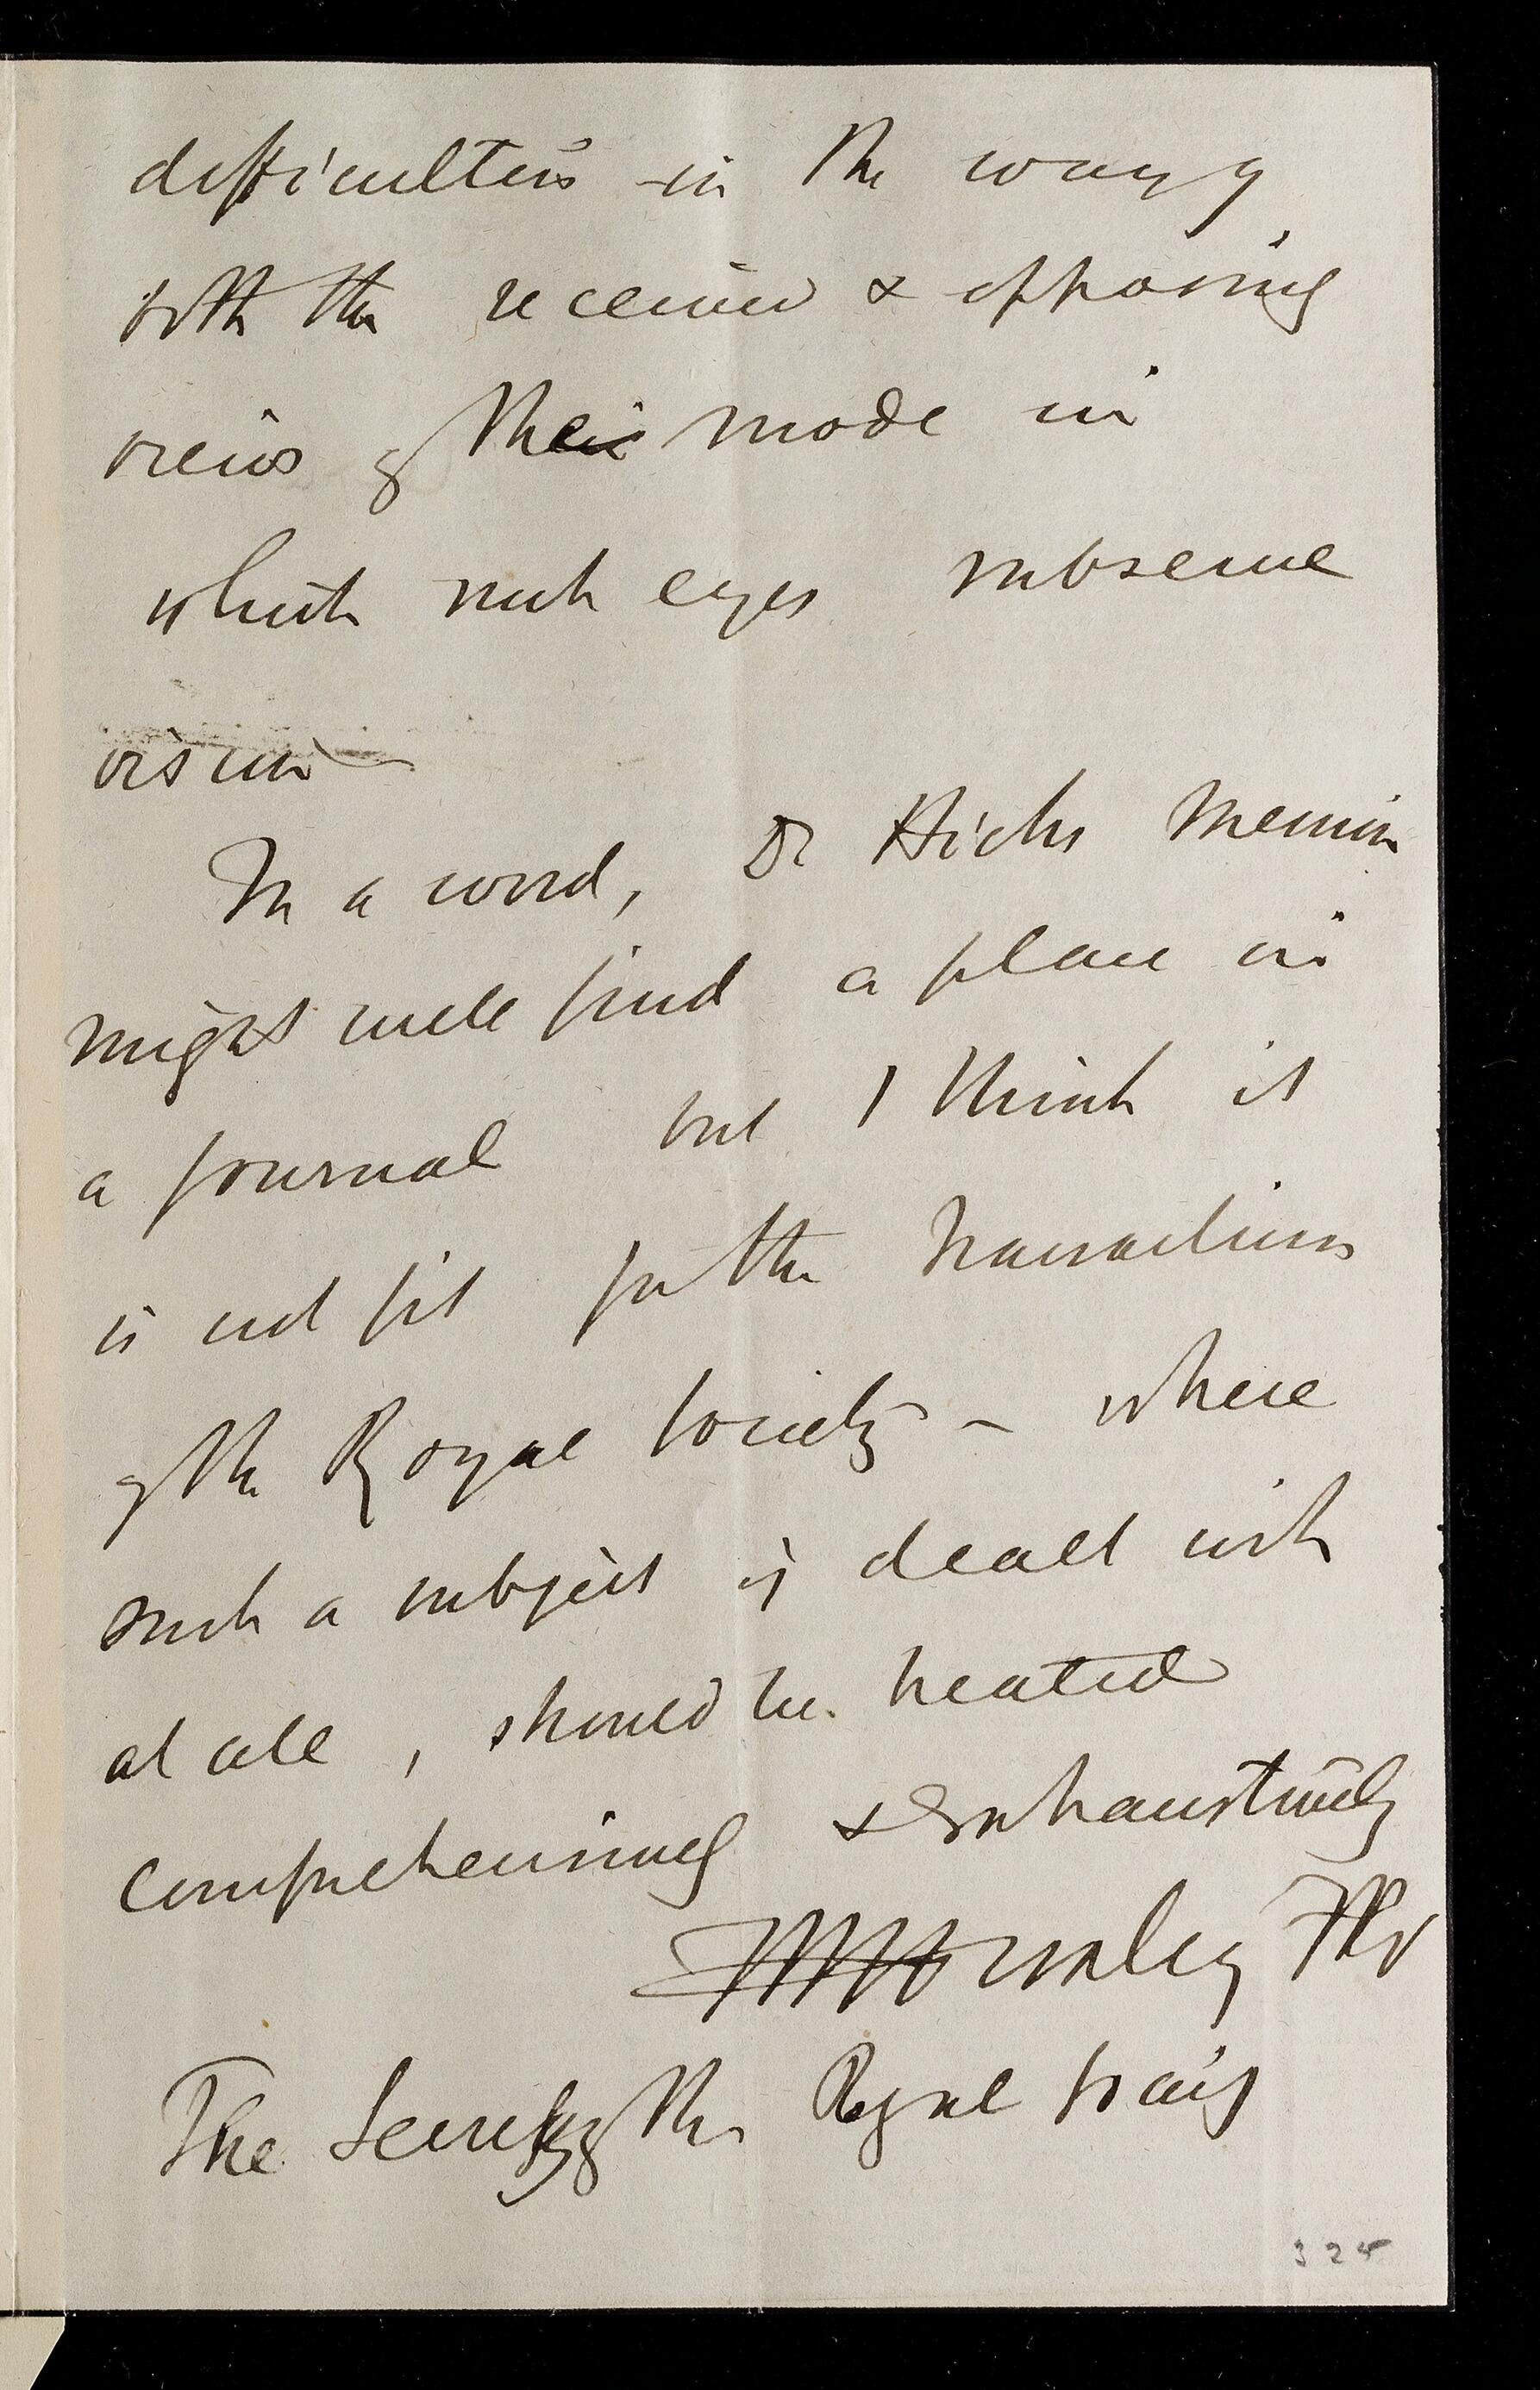 difficulties in the way of
both the received & opposing
views of the mode in
which such eyes subserve
vision
In a word, Dr Hicks Memoir
might well find a place in
a journal but I think it
is not fit for the Transactions
of the Royal Society – where
such a subject if dealt with
at all, should be treated
comprehensively & exhaustively
THHuxley FRS
The Secretary of the Royal Society
325